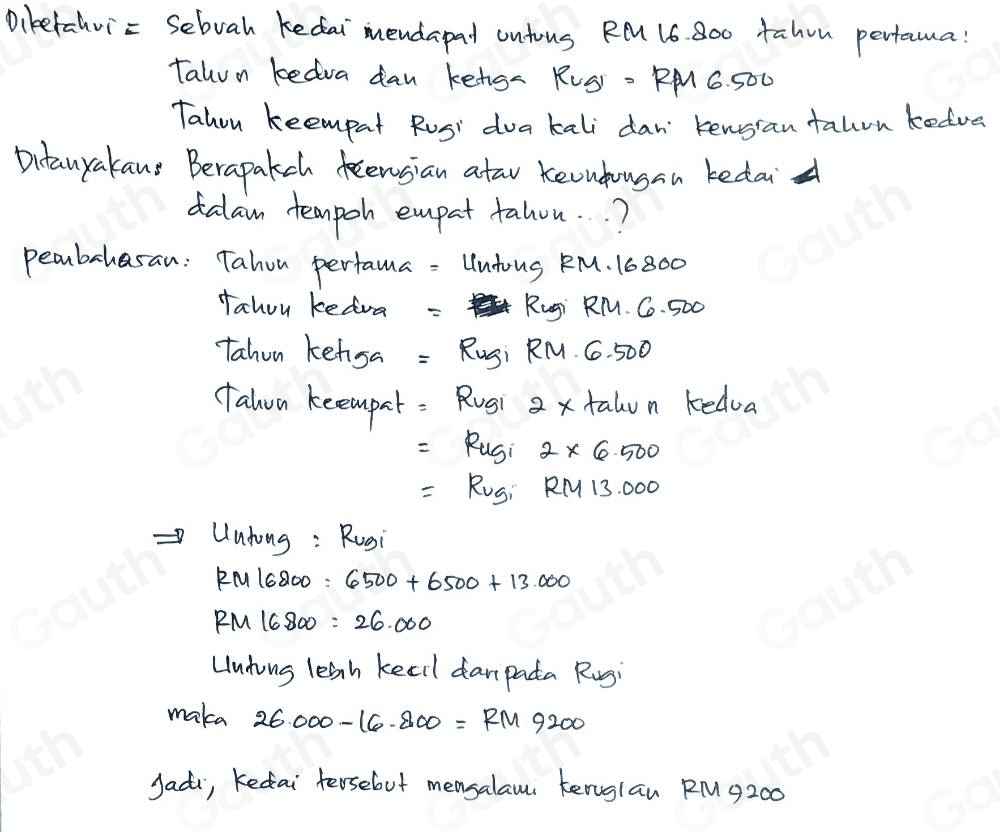 Diketahui = Sebuah kedai mendapat untung RM 16.800 tahun pertama!
Tahun kedua dan ketiga Rugi = RM 6.500
Tahun keempat Rugi dua kali dari kerugian tahun kedua
Ditanyakan: Berapakah kerugian atau keuntungan kedai
dalam tempoh empat tahun...?
pembahasan: Tahun pertama = Untung RM.16800
Tahun kedua = Rugi RM.6.500
Tahun ketiga = Rugi RM.6.500
Tahun keempat = Rugi 2 x tahun kedua
= Rugi 2 x 6.500
= Rugi RM 13.000
⇒ Untung : Rugi
RM 16800 : 6500 + 6500 + 13.000
RM 16800 : 26.000
Untung lebih kecil daripada Rugi
maka 26.000 - 16.800 = RM 9200
Jadi, kedai tersebut mengalami kerugian RM 9200